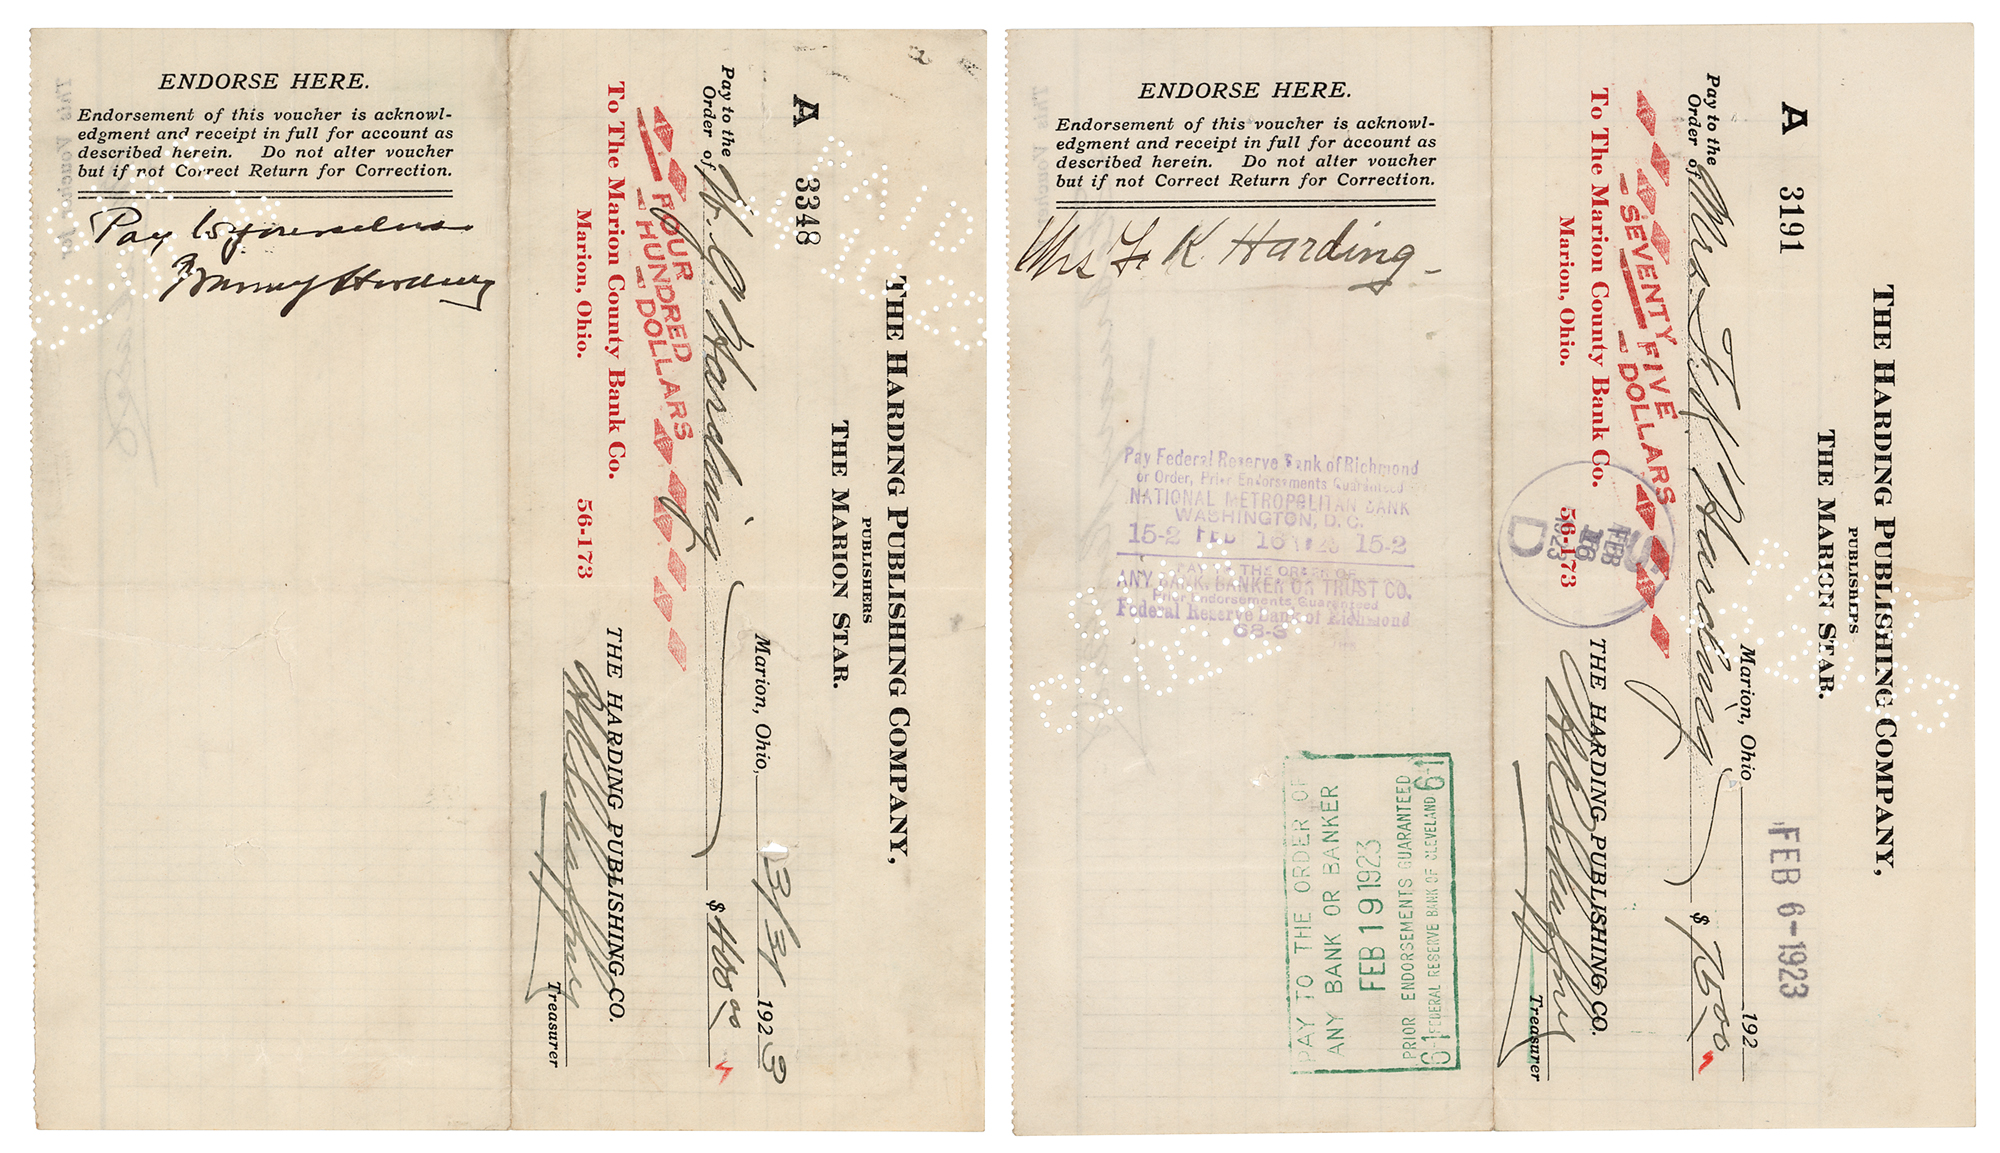 ENDORSE HERE.
Endorsement of this voucher is acknowl-
edgment and receipt in full for account as
described herein. Do not alter voucher
but if not Correct Return for Correction.
Pay to yourselves
Harding
A 3348
THE HARDING PUBLISHING COMPANY,
PUBLISHERS
THE MARION STAR.
Marion, Ohio, 3/31 1923
Pay to the
Order of W. G. Harding $400 00
FOUR
HUNDRED
DOLLARS
To The Marion County Bank Co.
Marion, Ohio. 56-173
THE HARDING PUBLISHING CO.
Treasurer
ENDORSE HERE.
Endorsement of this voucher is acknowl-
edgment and receipt in full for account as
described herein. Do not alter voucher
but if not Correct Return for Correction.
Mrs F K Harding
Pay Federal Reserve Bank of Richmond
or Order, Prior Endorsements Guaranteed
NATIONAL METROPOLITAN BANK
WASHINGTON, D. C.
15-2 FEB 16 1923 15-2
PAY TO THE ORDER OF
ANY BANK, BANKER OR TRUST CO.
Prior Endorsements Guaranteed
Federal Reserve Bank of Richmond
68-3
PAY TO THE ORDER OF
ANY BANK OR BANKER
FEB 19 1923
PRIOR ENDORSEMENTS GUARANTEED
61 FEDERAL RESERVE BANK OF CLEVELAND 61
A 3191
THE HARDING PUBLISHING COMPANY,
PUBLISHERS
THE MARION STAR.
Marion, Ohio FEB 6-1923 192
Pay to the
Order of Mrs. F. K. Harding $75 00
SEVENTY FIVE
DOLLARS
To The Marion County Bank Co.
Marion, Ohio. 56-173
S
FEB
16
1923
D
THE HARDING PUBLISHING CO.
Treasurer